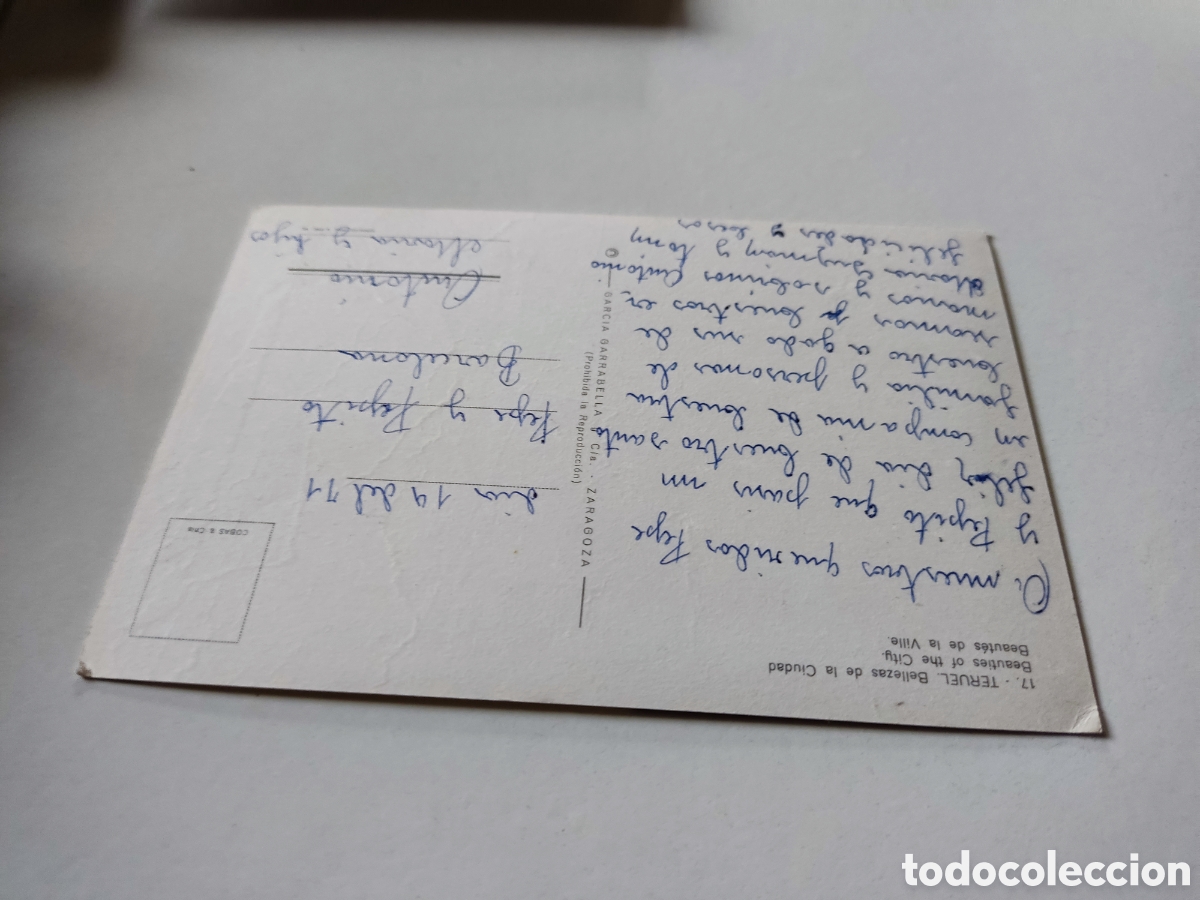 17. - TERUEL. Bellezas de la Ciudad
Beauties of the City.
Beautés de la Ville.
nuestros queridos Pepe
y Pepito que paris un
feliz dia de buestro santo
en compania de buestra
familia y personas de
buestro a gado
buestros er
manos y sobrinos Antonio
Maria Guzman y tomy
felicidades y besos
GARCIA GARRABELLA y Cía. - ZARAGOZA
(Prohibida la Reproducción)
COBAS & Cma
dia 19 del 71
Pepe y Pepito
Barcelona
Antonio
Maria y hijos
todocoleccion